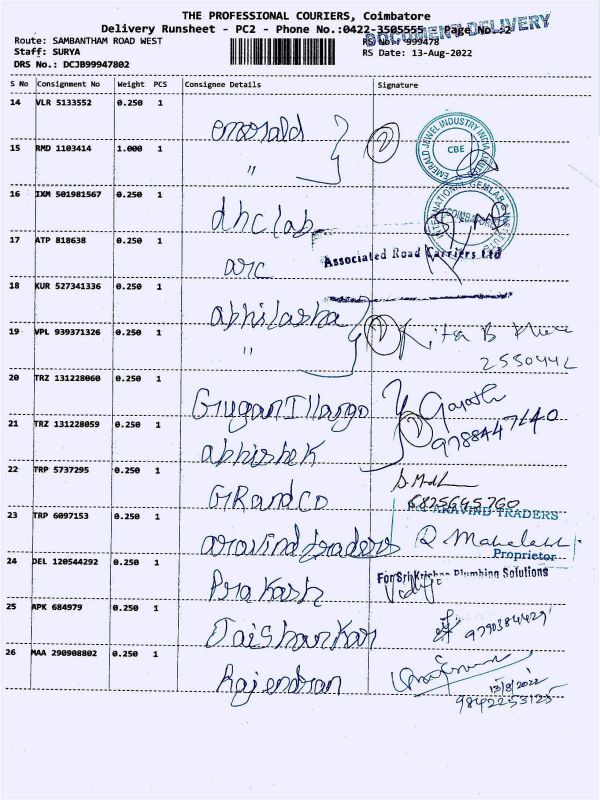 THE PROFESSIONAL COURIERS, Coimbatore
Delivery Runsheet - PC2 - Phone No.:0422-3505555 Page No.:2
DOCUMENT DELIVERY
Route: SAMBANTHAM ROAD WEST
RS No.: 999478
Staff: SURYA
RS Date: 13-Aug-2022
DRS No.: DCJB99947802
S No Consignment No Weight PCS Consignee Details Signature
14 VLR 5133552 0.250 1 emerald 2
EMERALD JEWEL INDUSTRY INDIA LIMITED
CBE
15 RMD 1103414 1.000 1 "
16 IXM 501981567 0.250 1 dhc lab
COIMBATORE
17 ATP 818638 0.250 1 arc
Associated Road Carriers Ltd
18 KUR 527341336 0.250 1 abhilasha
19 VPL 939371326 0.250 1 " 2
2550442
20 TRZ 131228060 0.250 1 Gugan Illango
21 TRZ 131228059 0.250 1 abhishek 2
22 TRP 5737295 0.250 1 GR and CO
23 TRP 6097153 0.250 1 aravind traders
ARAVIND TRADERS
Proprietor
24 DEL 120544292 0.250 1 Prakash
For Sri Krishna Plumbing Solutions
25 APK 684979 0.250 1 Jaishankar
26 MAA 290908802 0.250 1 Rajendran
13/8/2022
9842253125